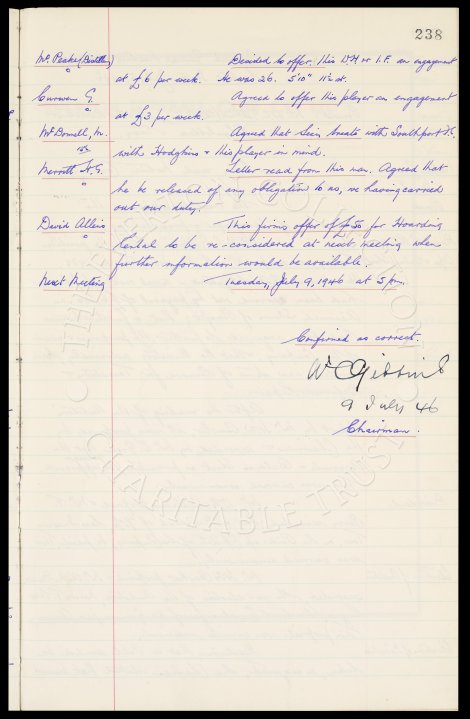 238
Mr. Peake (Distillery) Decided to offer this W.H or I.F. an engagement
at £6 per week. He was 26. 5'10" 11½ st.
Curwen G. Agreed to offer this player an engagement
at £3 per week.
McDonnell, M. Agreed that Secy treats with Southport F.C.
with Hodgkins & this player in mind.
Merritt H.G. Letter read from this man. Agreed that
he be released of any obligation to us, we having carried
out our duty.
David Allens This firm's offer of £50 for Hoarding
Rental to be re-considered at next meeting when
further information would be available.
Next Meeting Tuesday, July 9, 1946 at 5 pm.
Confirmed as correct.
W C Gibbins
9 July 46
Chairman.
CHARITABLE TRUST